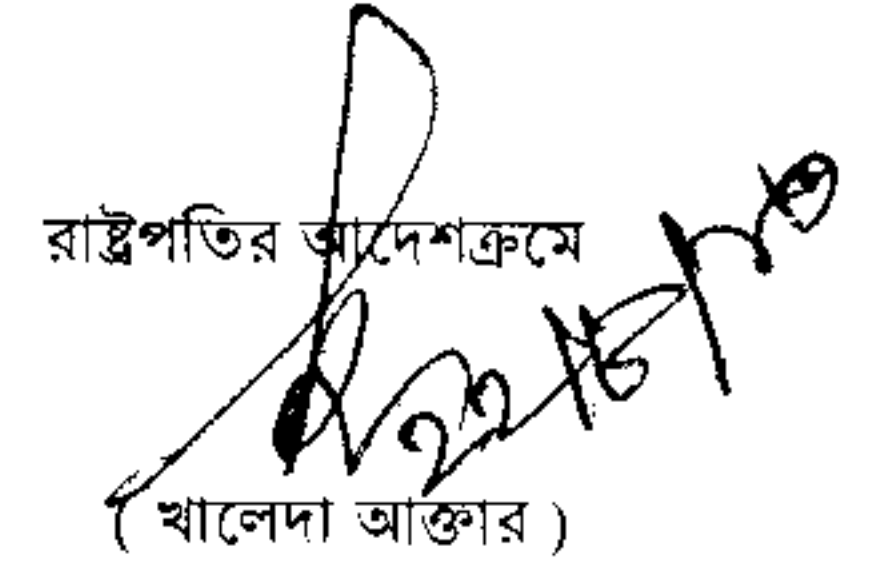 রাষ্ট্রপতির আদেশক্রমে
( খালেদা আক্তার )